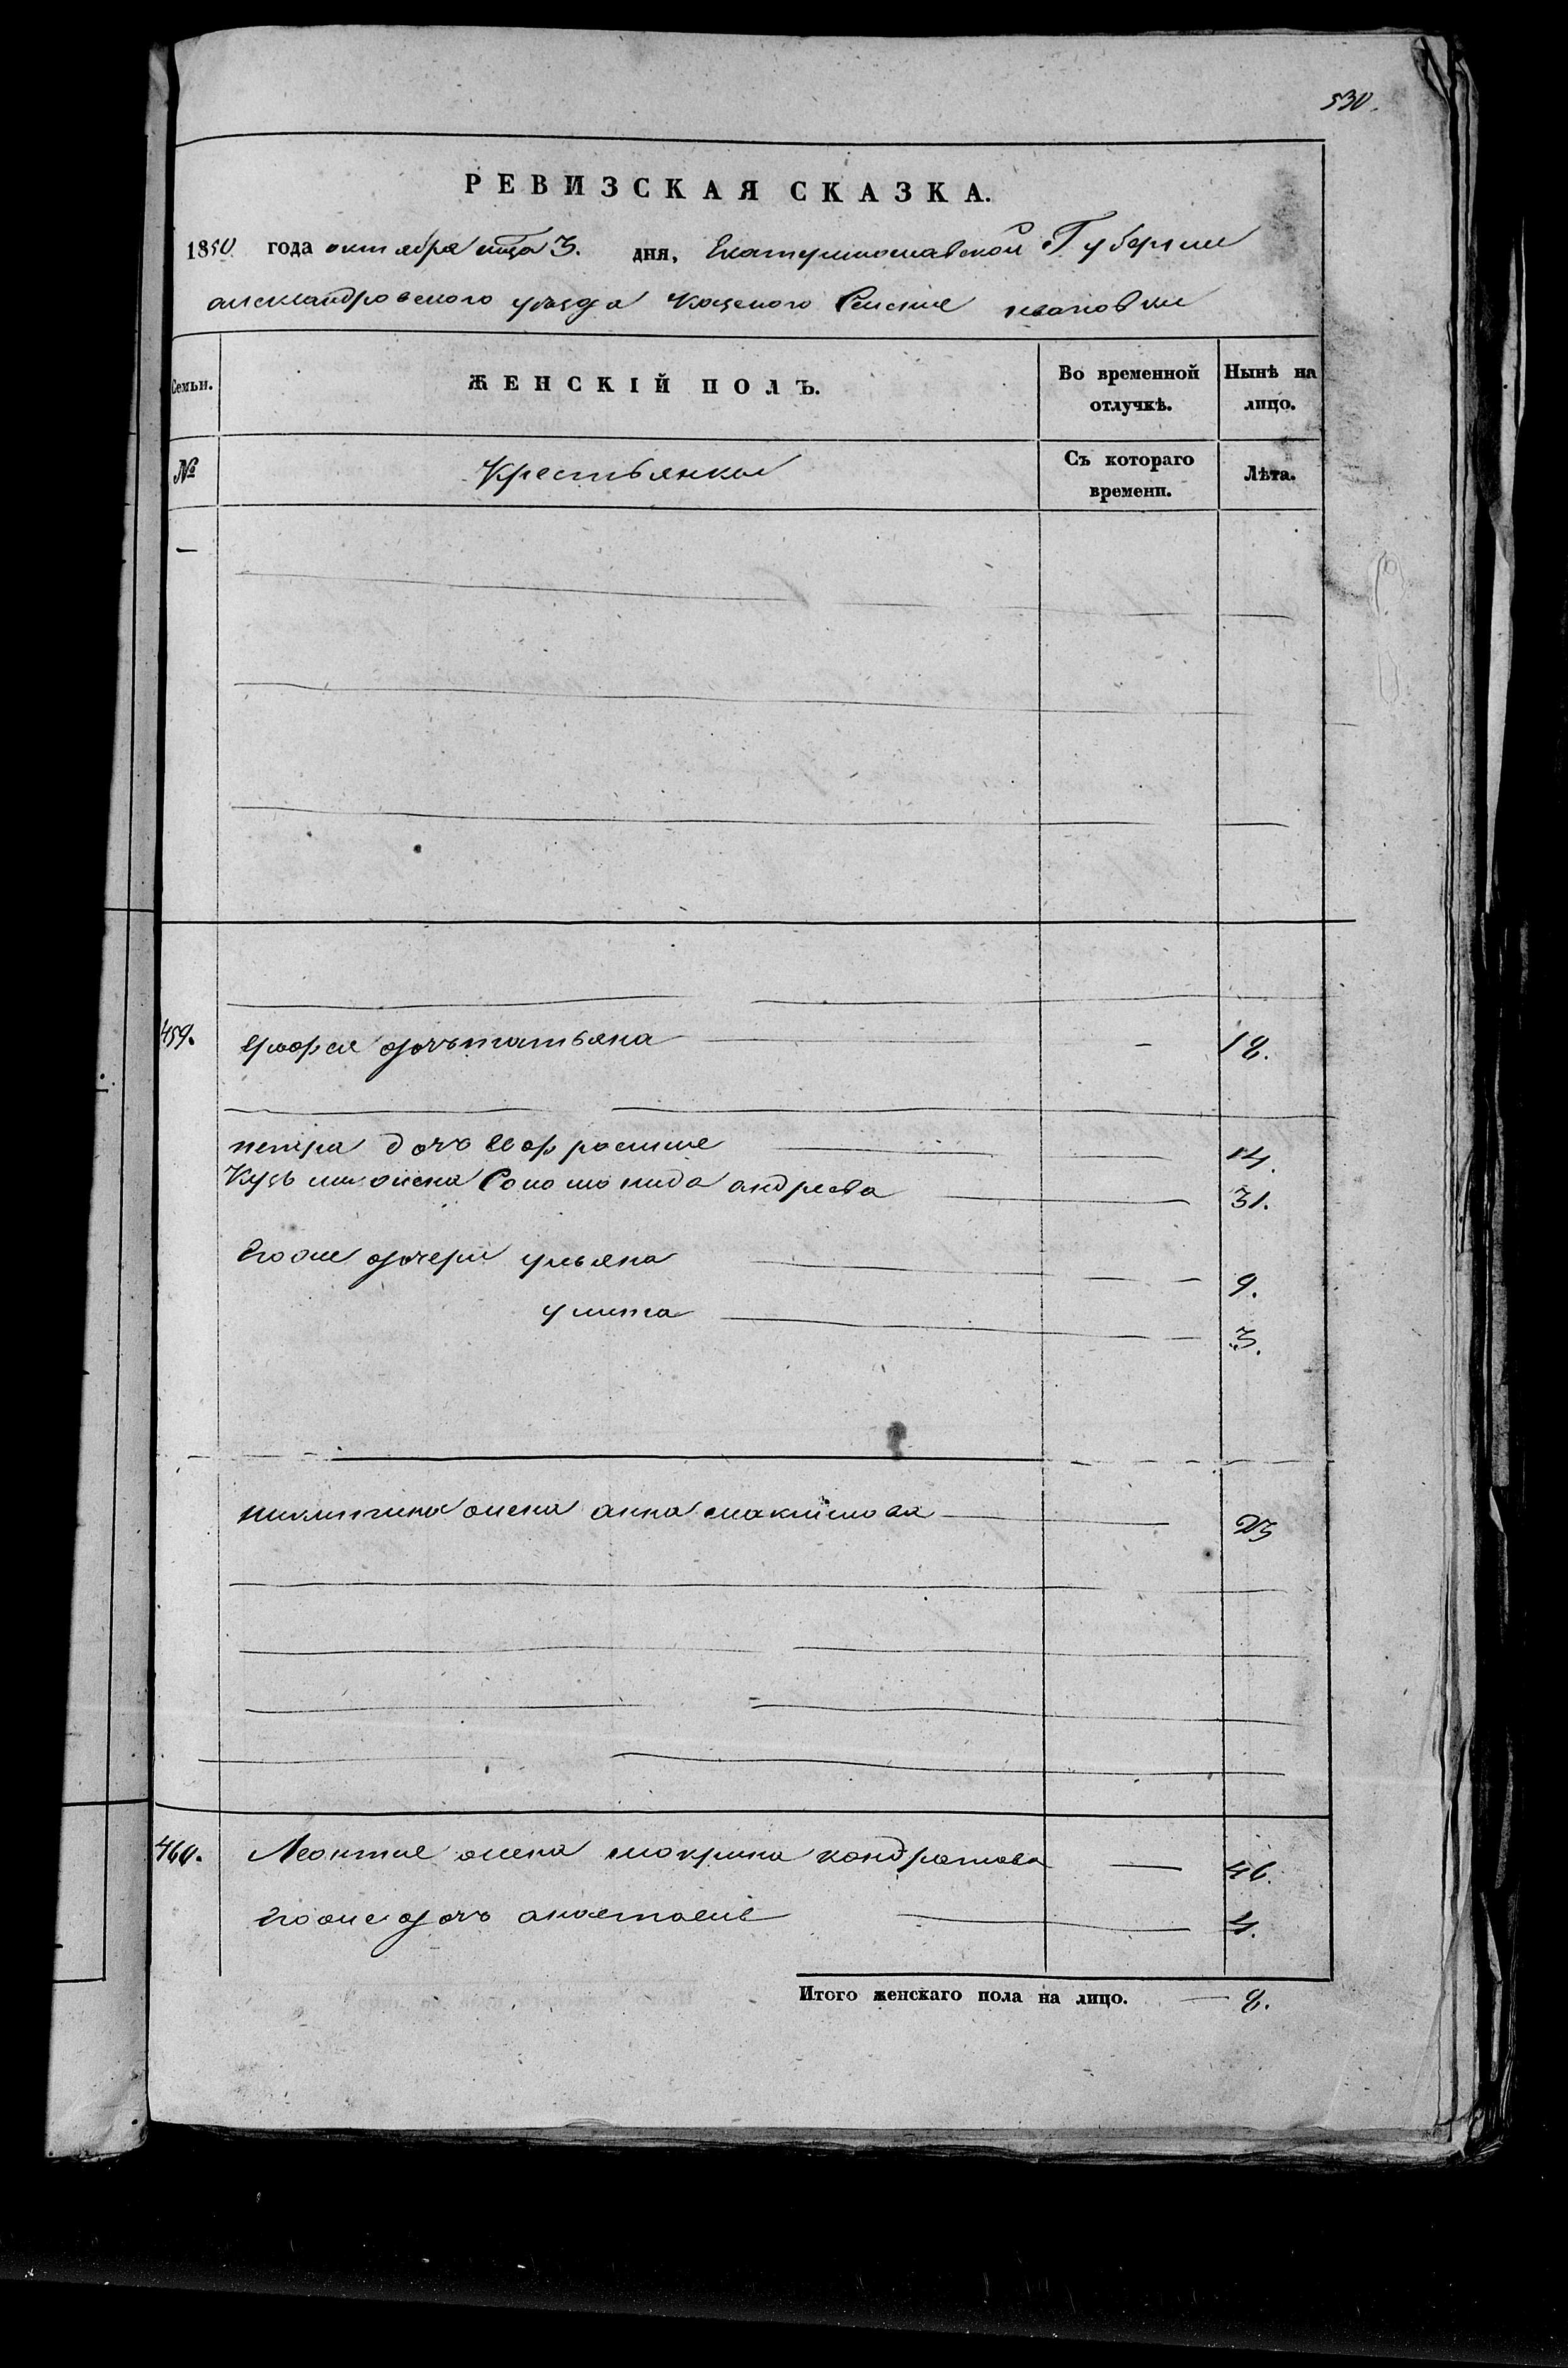 530.
РЕВИЗСКАЯ СКАЗКА.
1850 года октября мца 3. дня, Екатеринославской Губернии
александровского уезда Казеного Селения ивановки
Семьи. ЖЕНСКІЙ ПОЛЪ. Во временной отлучкѣ. Нынѣ на лицо.
№ Крестьянки Съ котораго времени. Лѣта.
459. дочь татьяна 18.
петра дочь Евфросиния 14.
Кузьми жена Соломонида андреева 31.
Его же дочери ульяна 9.
улита 3.
жена анна максимова 23
460. Леонтия жена макрина кондратова 46.
Его же дочь анастасия 4.
Итого женскаго пола на лицо. 8.